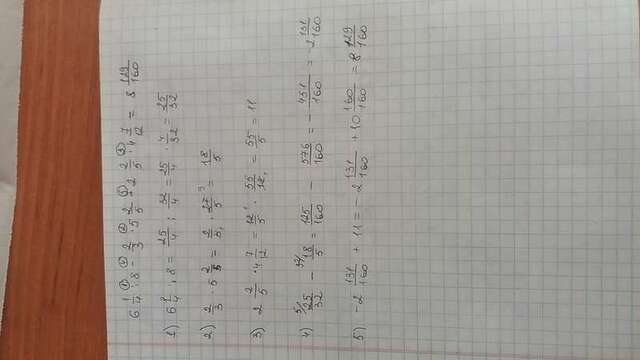 6 1/4 : 8 - 2/3 · 5 2/5 + 2 2/5 · 4 7/12 = 8 129/160
1) 6 1/4 : 8 = 25/4 : 32/4 = 25/4 · 4/32 = 25/32
2) 2/3 · 5 2/5 = 2/3 · 27/5 = 18/5
3) 2 2/5 · 4 7/12 = 12/5 · 55/12 = 55/5 = 11
4) 25/32 - 18/5 = 125/160 - 576/160 = - 451/160 = -2 131/160
5) -2 131/160 + 11 = -2 131/160 + 10 160/160 = 8 129/160